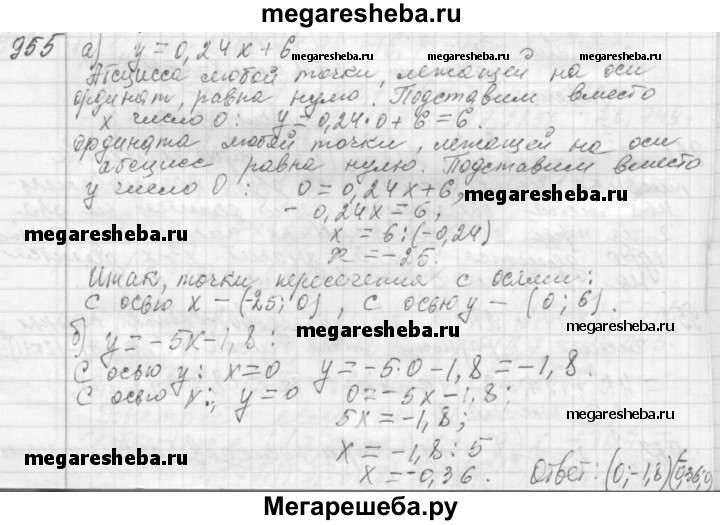 megaresheba.ru
955 а) y = 0,24x + 6
megaresheba.ru megaresheba.ru
Абсцисса любой точки, лежащей на оси
ординат, равна нулю. Подставим вместо
x число 0: y = 0,24·0 + 6 = 6.
ордината любой точки, лежащей на оси
абсцисс равна нулю. Подставим вместо
y число 0: 0 = 0,24x + 6, megaresheba.ru
- 0,24x = 6,
megaresheba.ru x = 6 : (-0,24)
x = -25.
Итак, точки пересечения с осями:
С осью x - (-25; 0), с осью y - (0; 6).
б) y = -5x - 1,8: megaresheba.ru megaresheba.ru
С осью y: x = 0 y = -5·0 - 1,8 = -1,8.
С осью x:, y = 0 0 = -5x - 1,8;
5x = -1,8; megaresheba.ru
megaresheba.ru x = -1,8 : 5
x = -0,36. Ответ: (0; -1,8) (-0,36; 0
Мегарешеба.ру